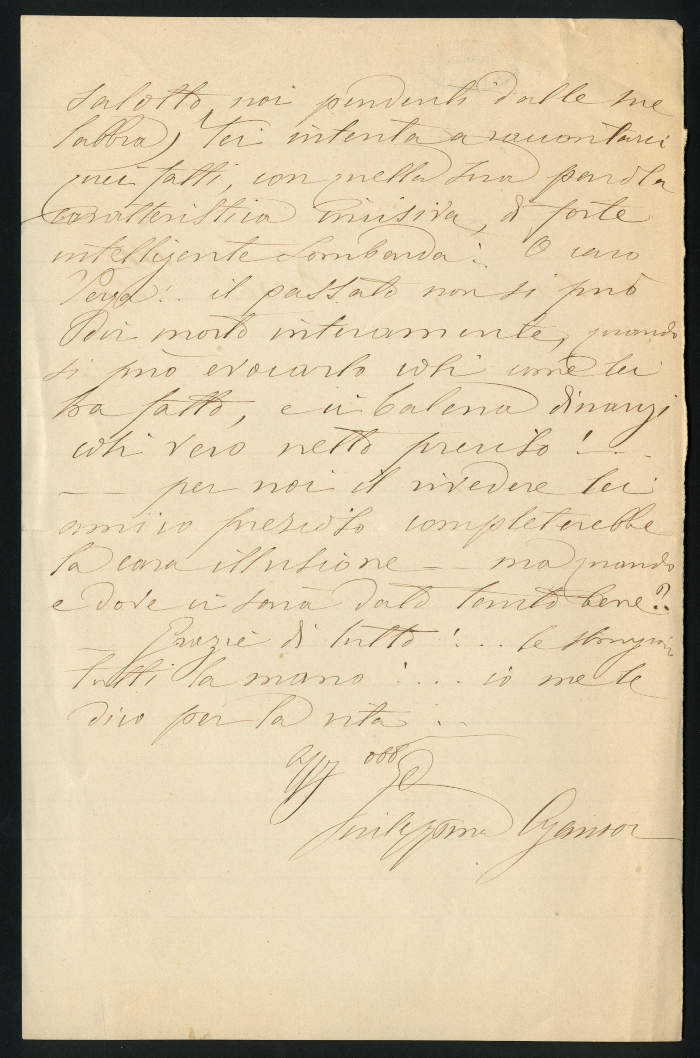 salotto, noi pendenti dalle sue
labbra, Lei intenta a raccontarci
quei fatti, con quella sua parola
caratteristica incisiva, di forte
intelligente Lombarda! O caro
Peya!.. il passato non si può
dir morto interamente, quando
si può evocarlo così come lei
ha fatto, e ci balena dinanzi
così vero netto preciso!...
_ _ per noi il rivedere lei
amico prezioso completerebbe
la cara illusione _ _ ma quando
e dove ci sarà dato tanto bene?.
_ Grazie di tutto!... le stringiam
tutti la mano!... io me le
dico per la vita...
aff obb
Giuseppina